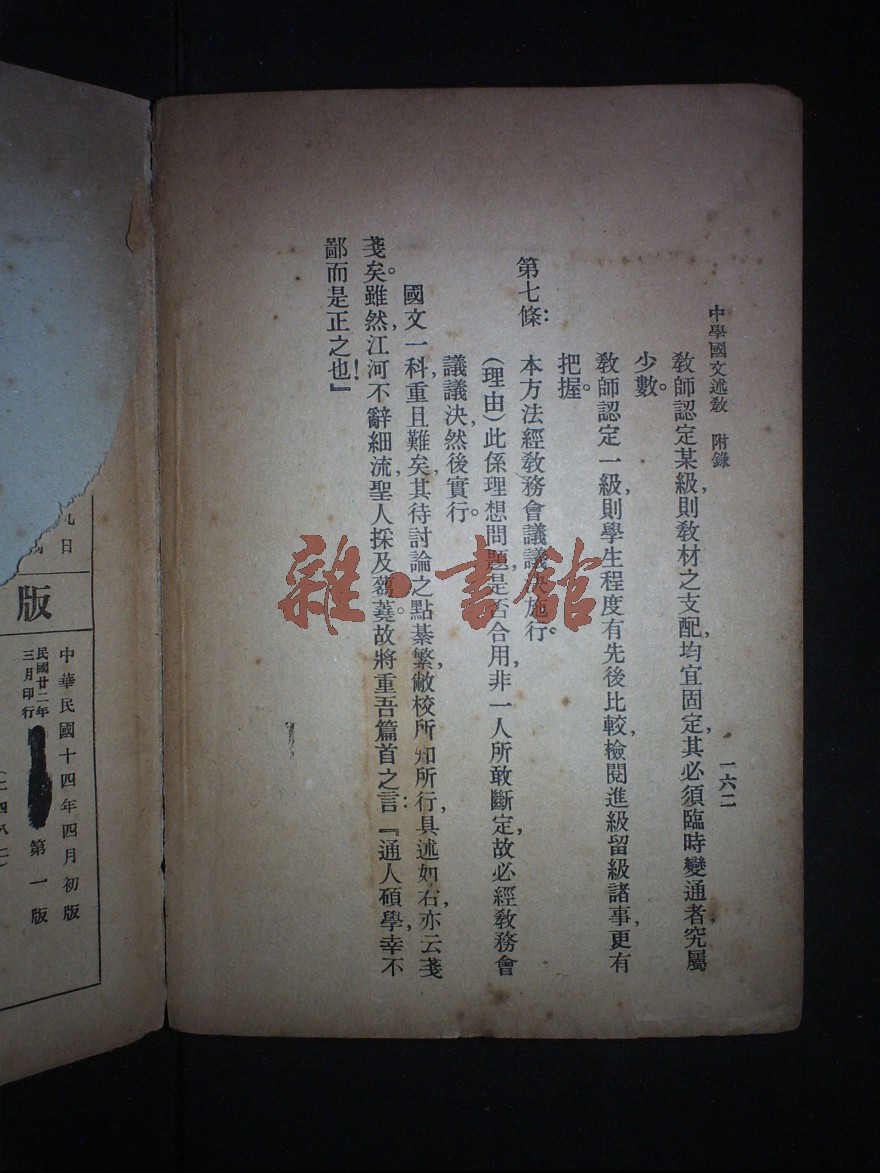 中學國文述教　附錄　一六二
教師認定某級，則教材之支配，均宜固定，其必須臨時變通者，究屬
少數。
教師認定一級，則學生程度有先後比較，檢閱進級留級諸事，更有
把握。
第七條：本方法經教務會議議決施行。
（理由）此係理想問題，是否合用，非一人所敢斷定，故必經教務會
議議決，然後實行。
國文一科，重且難矣，其待討論之點綦繁，敝校所知所行，具述如右，亦云戔
戔矣。雖然，江河不辭細流，聖人採及蒭蕘。故將重吾篇首之言：『通人碩學，幸不
鄙而是正之也！』
雜·書館
九日
版
中華民國十四年四月初版
民國廿二年
三月印行
第一版
（二四八二）